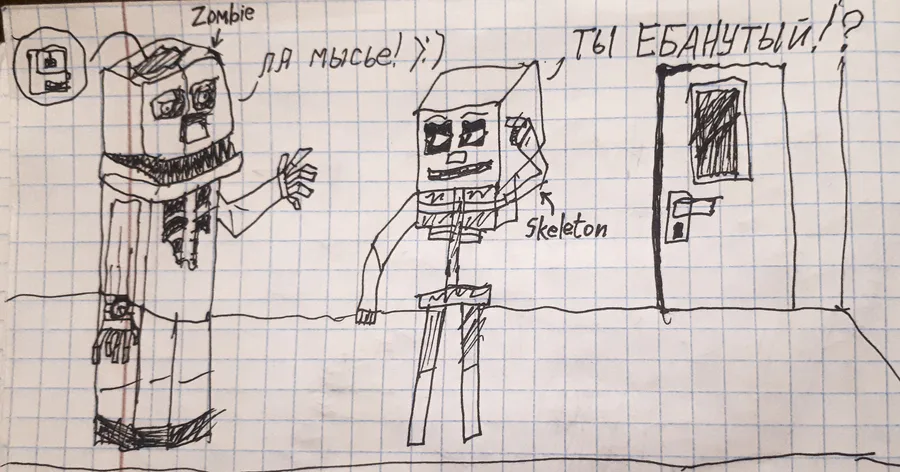 Zombie
ЛА МЫСЬЕ! ):)
ТЫ ЕБАНУТЫЙ!?
Skeleton